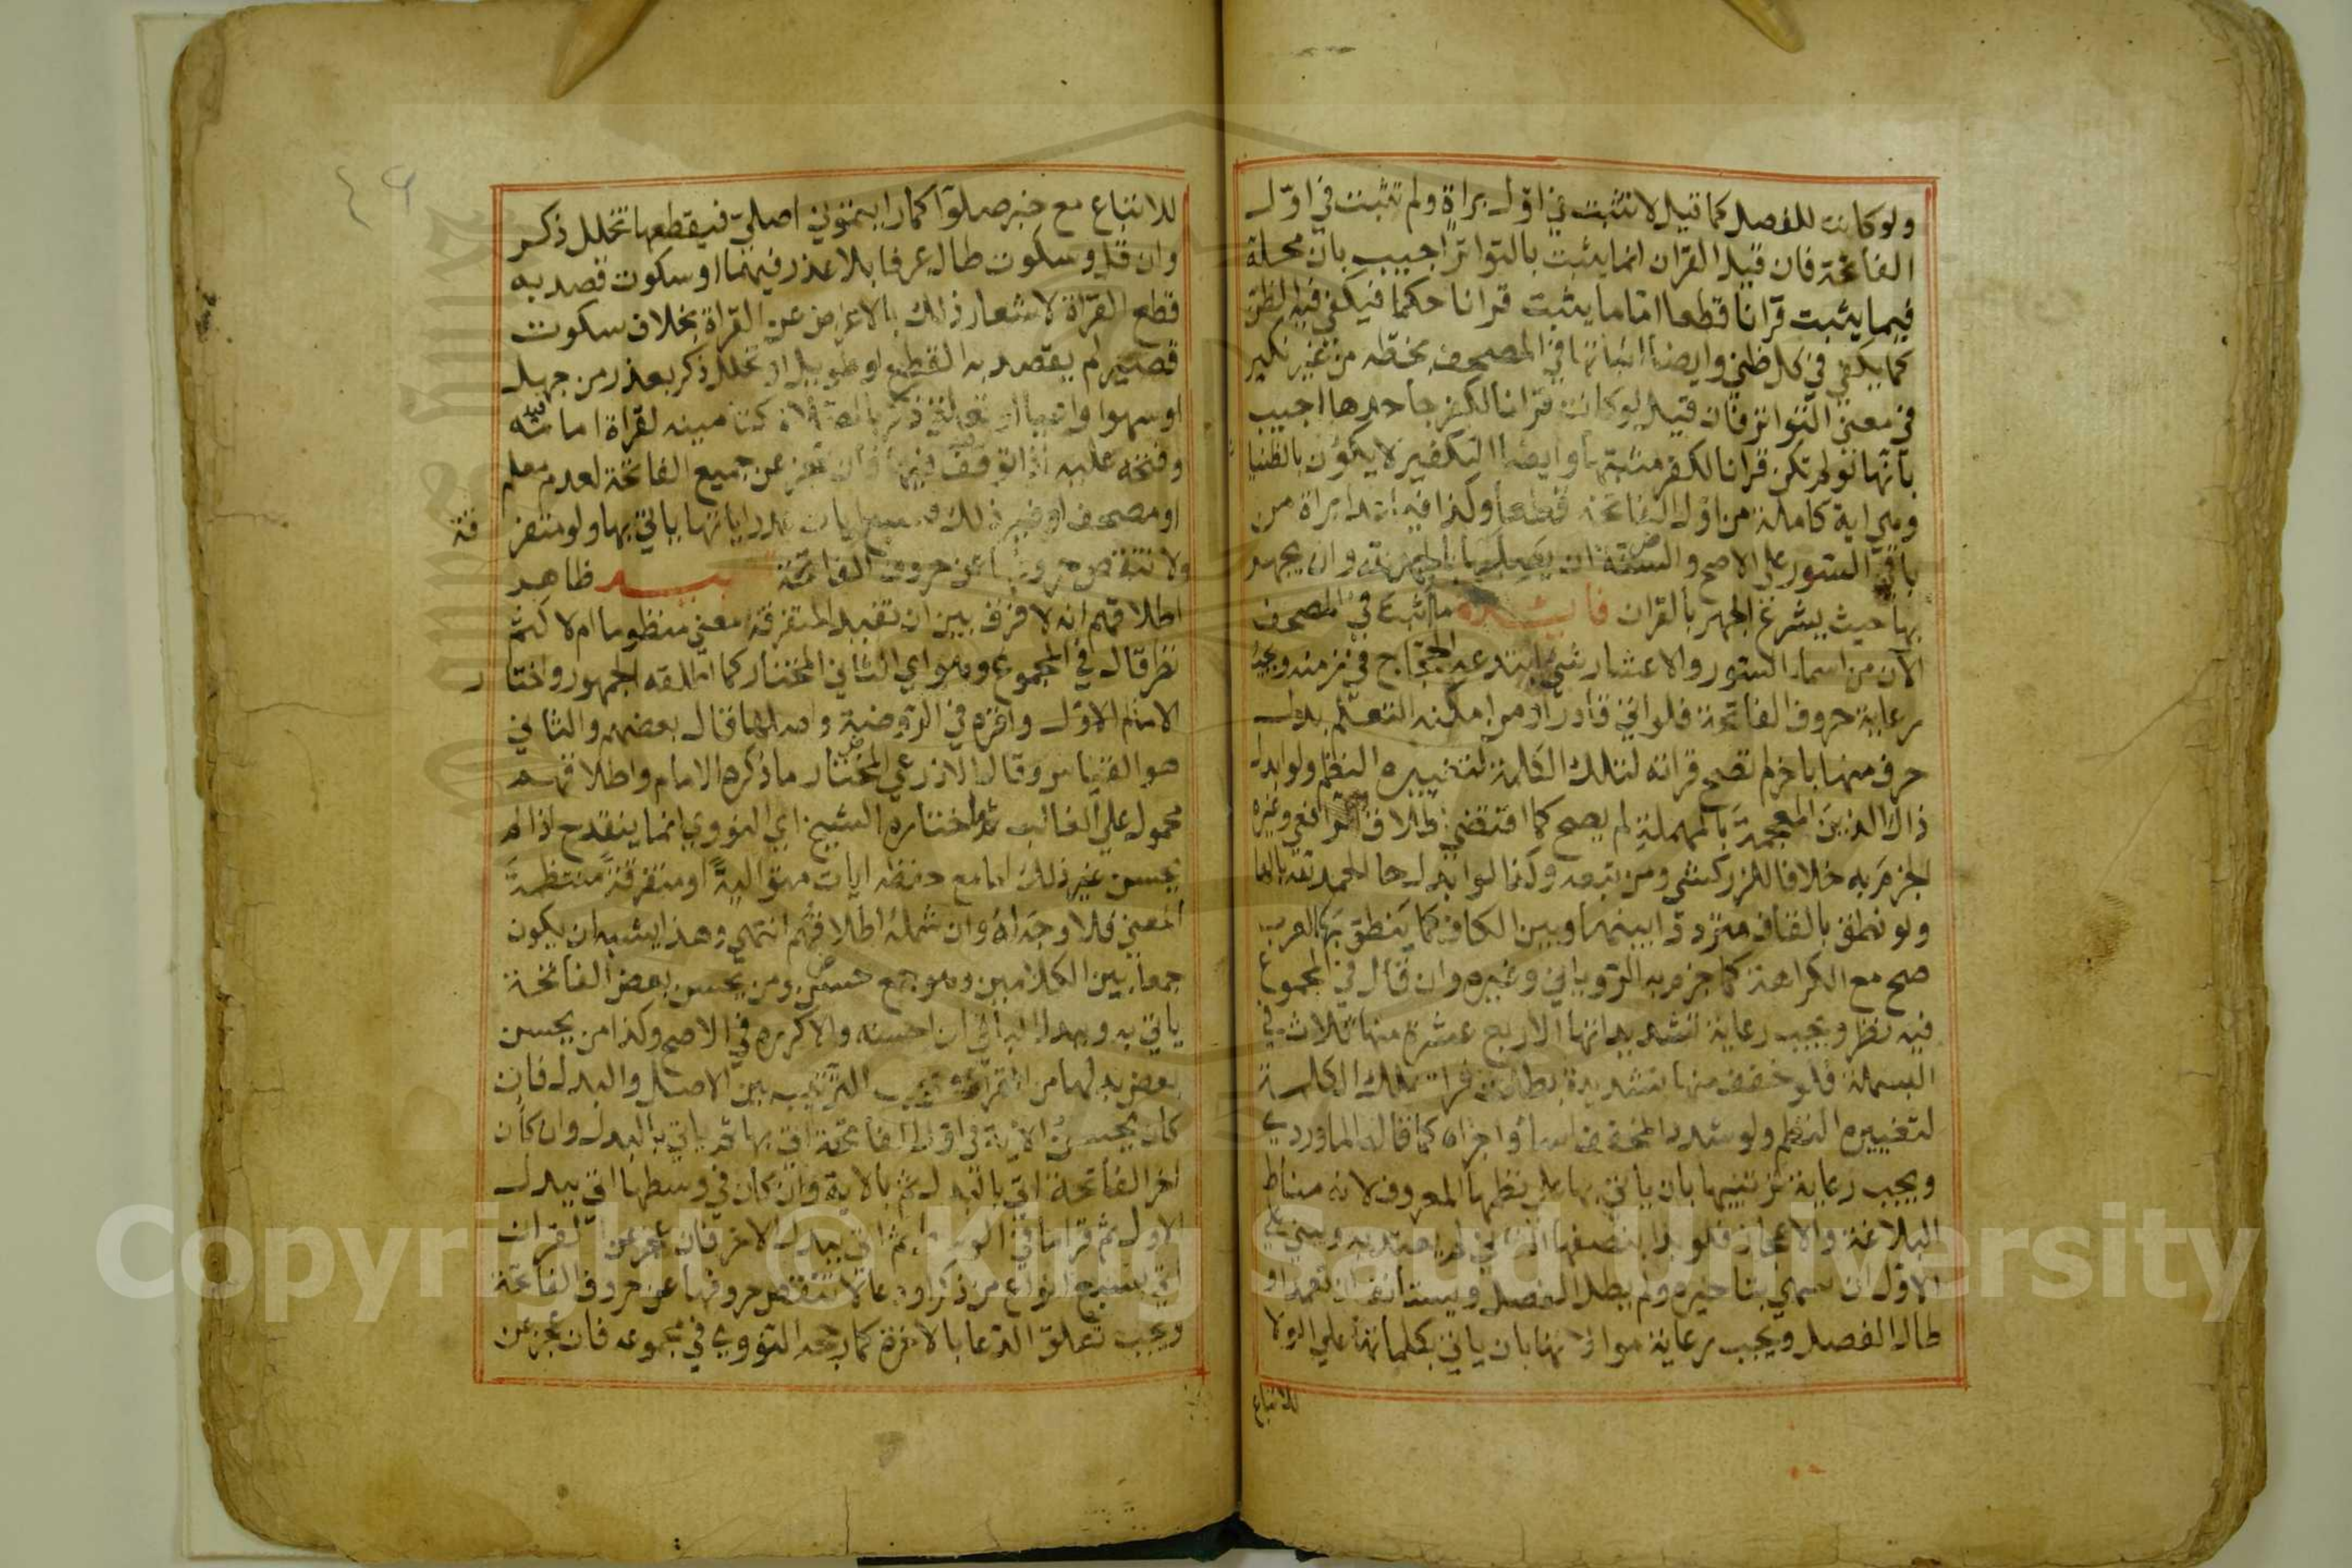 ولو كانت للفصل كما قيل لا تثبت في اوّل براة ولم تثبت في اوّل
الفاتحة فان قيل القران انما يثبت بالتواتر اجيب بان محله
فيما يثبت قرآنا قطعا امّا ما يثبت قرانا حكما فيكفي فيه الظن
كما يكفي في كل ظني وايضا اثباتها في المصحف بخطّه من غير نكير
في معنى التواتر فان قيل لو كانت قرانا لكفر جاحدها اجيب
بانها لو لم تكن قرانا لكفر مثبتها وايضا التكفير لا يكون بالظنيا
وهي اية كاملة من اوّل الفاتحة قطعا وكذا فيما عدا براة من
باقي السور على الاصح والسنة ان يصلها بالحمد لله وان يجهر
بها حيث يشرع الجهر بالقران فائدة ما اثبت في المصحف
الآن من اسماء السور والاعشار شئ ابتدعه الحجّاج في زمنه ويجب
رعاية حروف الفاتحة فلو اتى قادر او من امكنه التعلّم بدل
حرف منها باخر لم تصح قراته لتلك الكلمة لتغييره النظم ولو ابدل
ذال الذين المعجمة بالمهملة لم يصح كما اقتضى اطلاق الرافعي وغيره
الجزم به خلافا للزركشي ومن تبعه وكذا لو ابدل حا الحمد لله بالها
ولو نطق بالقاف مترددة بينها وبين الكاف كما ينطق بها العرب
صح مع الكراهة كما جزم به الروياني وغيره وان قال في المجموع
فيه نظر ويجب رعاية تشديداتها الاربع عشرة منها ثلاث في
البسملة فلو خفف منها تشديدة بطلت قراة تلك الكلمة
لتغييره النظم ولو شدد المخفف اساء واجزاه كما قاله الماوردي
ويجب رعاية ترتيبها بان ياتي بها على نظمها المعروف لانه مناط
البلاغة والاعجاز فلو بدا بنصفها الثاني لم يعتد به ويبني على
الاوّل ان سهى بتاخيره ولم يطل الفصل ويستانف ان تعمد او
طال الفصل ويجب رعاية موالاتها بان ياتي بكلماتها على الولا
للاتباع
للاتباع مع خبر صلوا كما رايتموني اصلي فيقطعها تخلل ذكر
وان قل وسكوت طال عرفا بلا عذر فيهما او سكوت قصد به
قطع القراة لاشعار ذلك بالاعراض عن القراة بخلاف سكوت
قصير لم يقصد به القطع او طويل او تخلل ذكر بعذر من جهل
او سهو او اعيا او تعلق ذكر بالصلاة كتامينه لقراة امامه
وفتحه عليه اذا توقف فيها فان عجز عن جميع الفاتحة لعدم معلم
او مصحف او غير ذلك فسبع ايات عدد اياتها ياتي بها ولو متفر
قة
ولا تنقص حروفها عن حروف الفاتحة تنبيه ظاهر
اطلاقهم انه لا فرق بين ان تفيد المتفرقة معنى منظوما ام لا كثم
نظر قال في المجموع وهو اي الثاني المختار كما اطلقه الجمهور واختا
ر
الامام الاوّل واقره في الروضة واصلها قال بعضهم والثاني
هو القياس وقال الاذرعي المختار ما ذكره الامام واطلاقهم
محمول على الغالب ثم ما اختاره الشيخ اي النووي انما ينقدح اذا لم
يحسن غير ذلك اما مع حفظه ايات متوالية او متفرقة منتظمة
المعنى فلا وجه له وان شمله اطلاقهم انتهى وهذا يشبه ان يكون
جمعا بين الكلامين وهو جمع حسن ومن يحسن بعض الفاتحة
ياتي به وببدل الباقي ان احسنه والا كرره في الاصح وكذا من يحسن
بعض بدلها من القراة ويجب الترتيب بين الاصل والبدل فان
كان يحسن الاية في اوّل الفاتحة اتى بها ثم ياتي بالبدل وان كان
اخر الفاتحة اتى بالبدل ثم بالاية وان كان في وسطها اتى ببدل
الاول ثم قرا ما في الوسط ثم اتى ببدل الاخر فان عجز عن القران
اتى بسبع انواع من ذكر او دعا لا تنقص حروفها عن حروف الفاتحة
ويجب تعلق الدعا بالاخرة كما رجحه النووي في مجموعه فان عجز عن
٤٦
Copyright © King Saud University